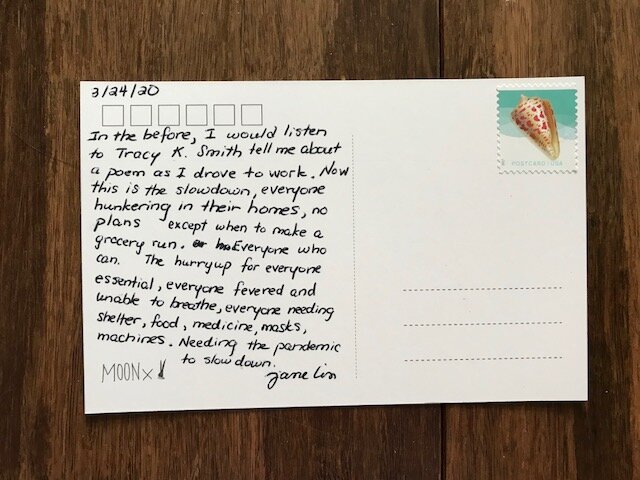 3/24/20
In the before, I would listen
to Tracy K. Smith tell me about
a poem as I drove to work. Now
this is the slowdown, everyone
hunkering in their homes, no
plans except when to make a
grocery run. Everyone who
can. The hurryup for everyone
essential, everyone fevered and
unable to breathe, everyone needing
shelter, food, medicine, masks,
machines. Needing the pandemic
to slow down.
jane lin
MOON×
POSTCARD USA